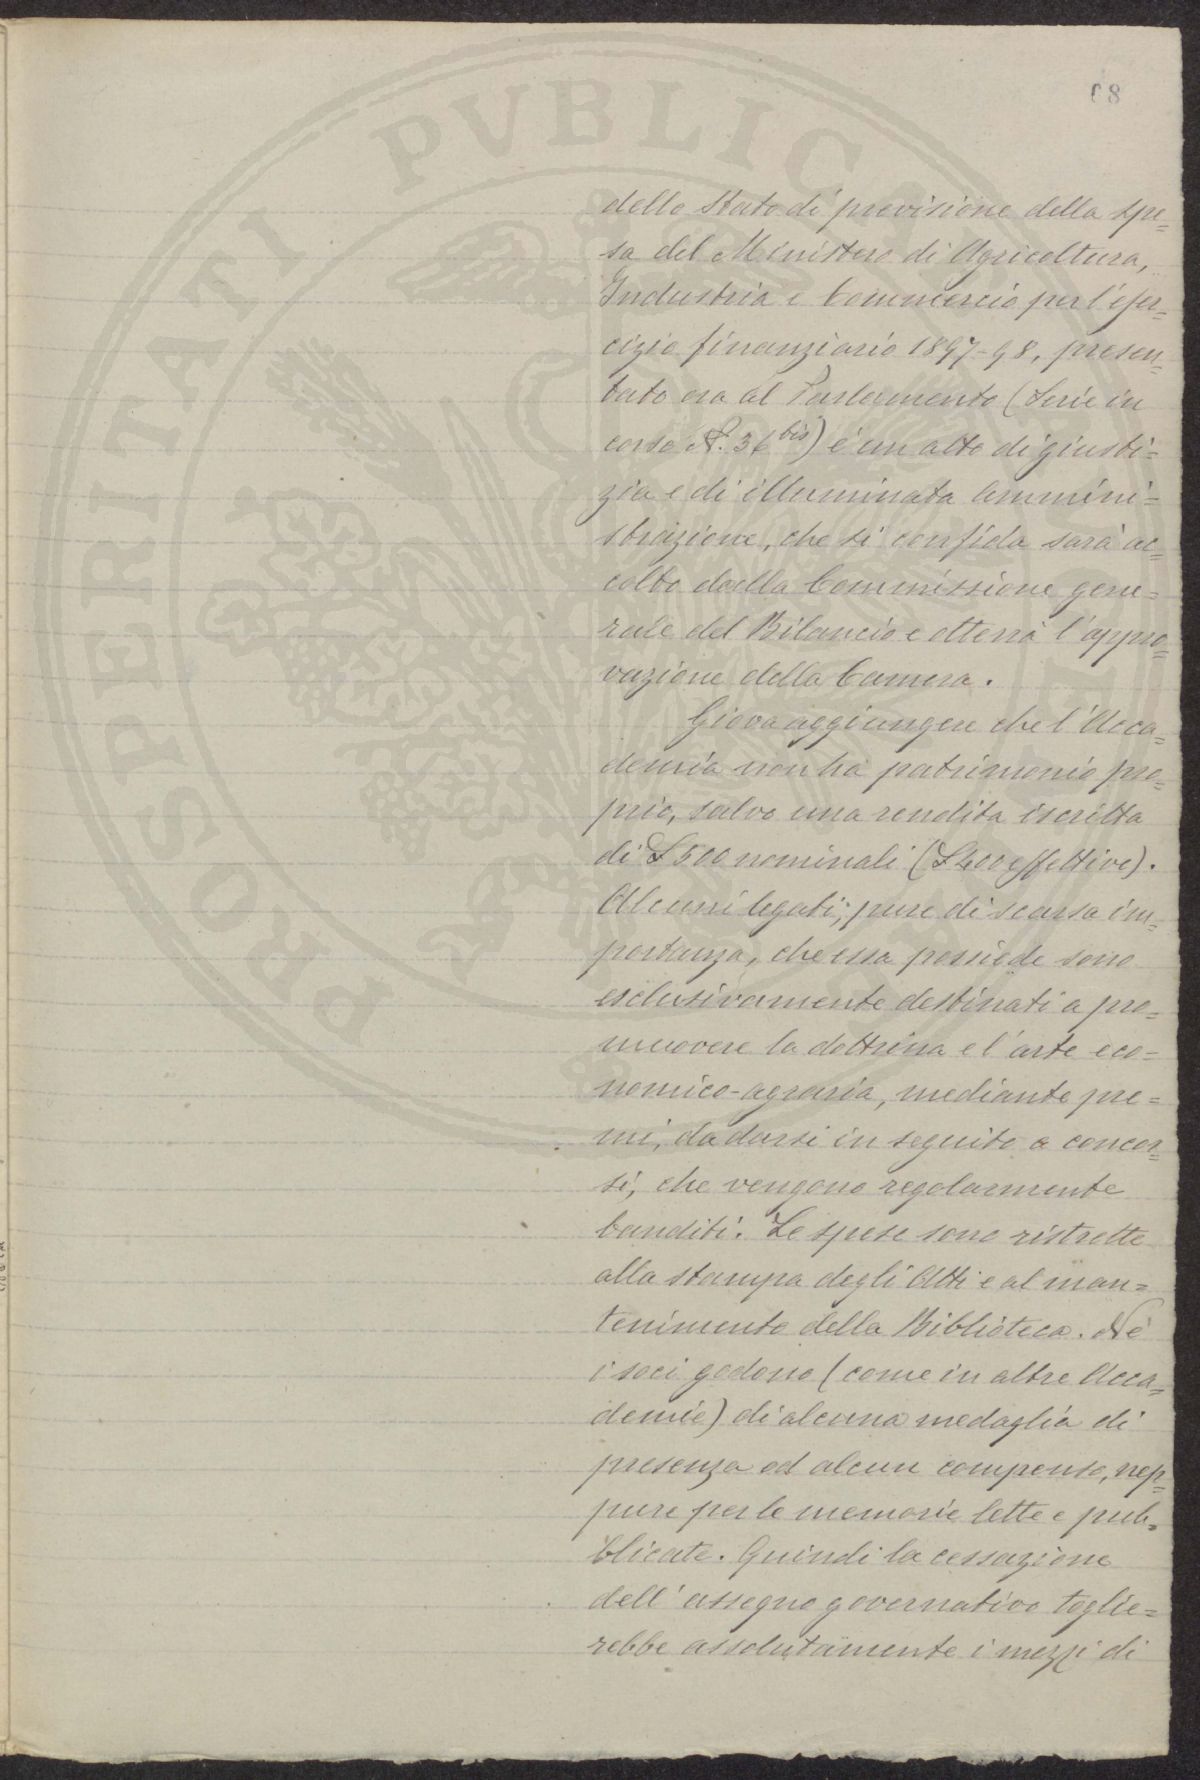 68
PROSPERITATI PVBLICAE
dello Stato di previsione della spe=
sa del Ministero di Agricoltura,
Industria e Commercio per l'eser=
cizio finanziario 1897-98, presen=
tato ora al Parlamento (Serie in
corso N. 36 bis) è un atto di giusti=
zia e di illuminata Ammini=
strazione, che si confida sarà ac=
colto dalla Commissione gene=
rale del Bilancio e otterrà l'appro=
vazione della Camera.
Giova aggiungere che l'Acca=
demia non ha patrimonio pro=
prio, salvo una rendita iscritta
di £ 500 nominali (£ 400 effettive).
Alcuni legati, pure di scarsa im=
portanza, che essa possiede sono
esclusivamente destinati a pro=
muovere la dottrina e l'arte eco=
nomico-agraria, mediante pre=
mi, da darsi in seguito a concor=
si, che vengono regolarmente
banditi. Le spese sono ristrette
alla stampa degli Atti e al man=
tenimento della Biblioteca. Nè
i soci godono (come in altre Acca=
demie) di alcuna medaglia di
presenza od alcun compenso, nep=
pure per le memorie lette e pub=
blicate. Quindi la cessazione
dell'assegno governativo toglie=
rebbe assolutamente i mezzi di